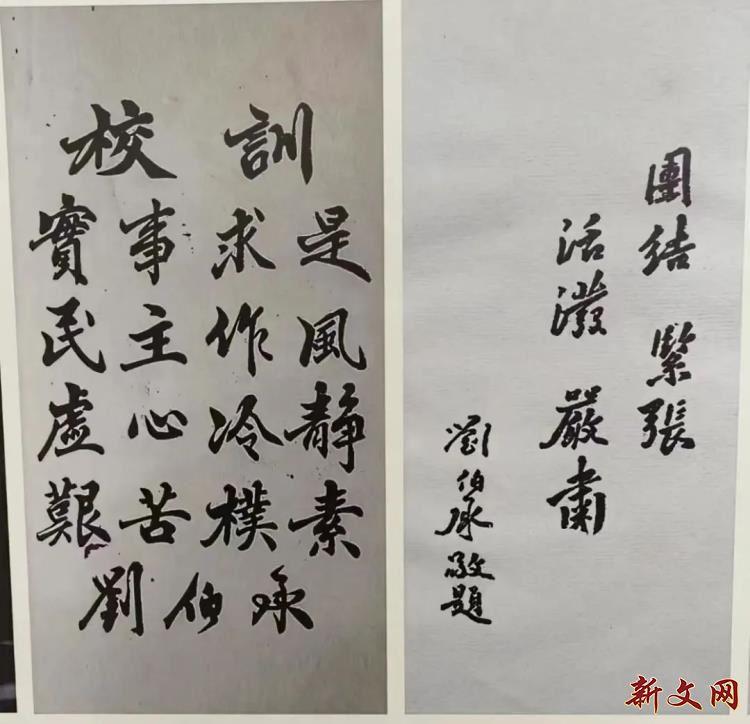 校訓
實事求是
民主作風
虛心冷静
艱苦樸素
劉伯承
團結 緊張
活潑 嚴肅
劉伯承敬題
新文网